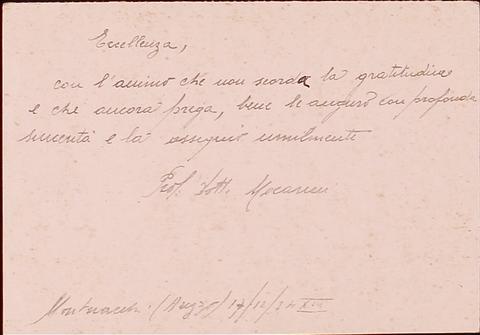 Eccellenza,
con l'animo che non scorda la gratitudine
e che ancora prega, bene le auguro con profonda
sincerità e la ossequio umilmente
Prof. Dott. Mocarini
(Arezzo) 17/12/34 XIII